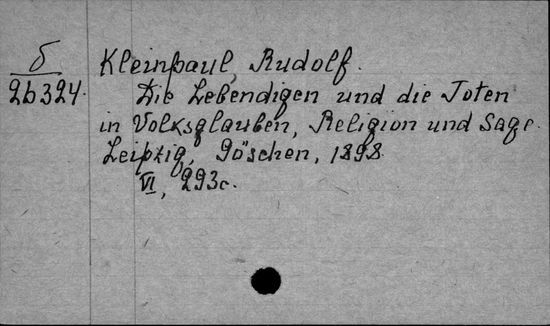 б
2b324.
Kleinpaul, Rudolf.
Die Lebendigen und die Toten
in Volksglauben, Religion und Sage.
Leipzig, Göschen, 1898.
VI, 293c.